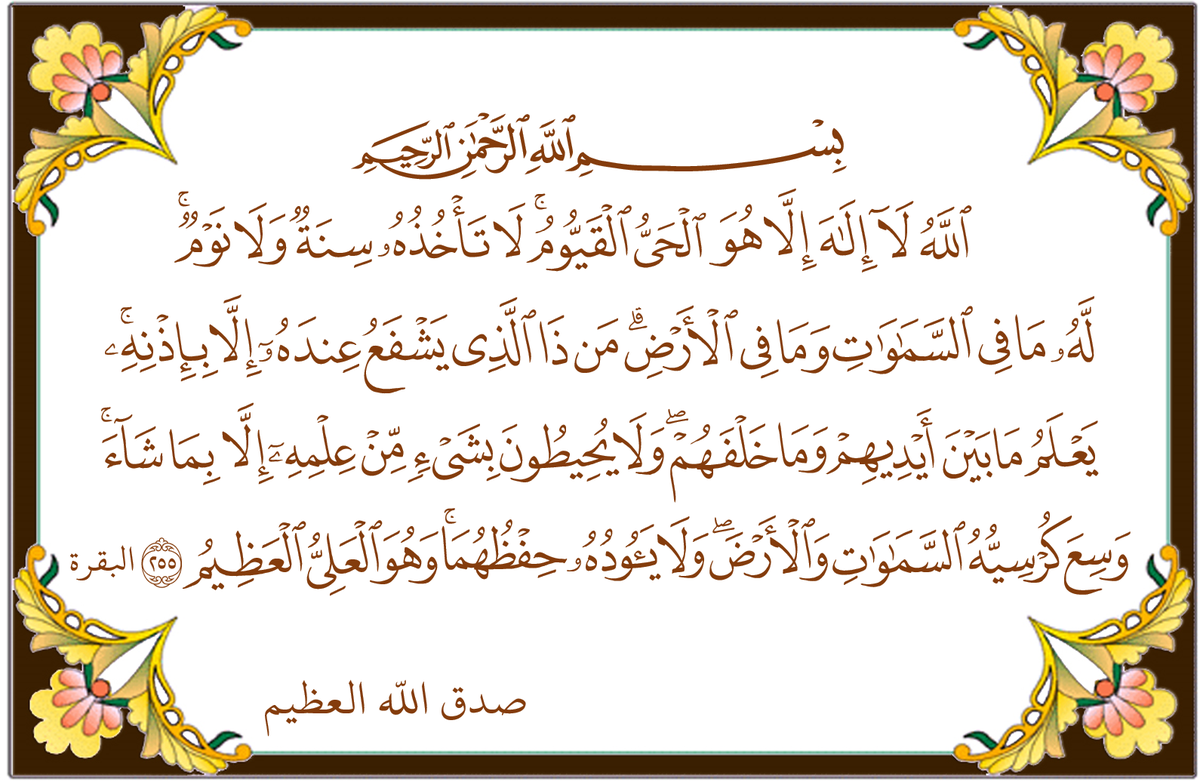 بِسْمِ ٱللَّهِ ٱلرَّحْمَٰنِ ٱلرَّحِيمِ
ٱللَّهُ لَآ إِلَٰهَ إِلَّا هُوَ ٱلْحَىُّ ٱلْقَيُّومُ ۚ لَا تَأْخُذُهُۥ سِنَةٌ وَلَا نَوْمٌ ۚ
لَّهُۥ مَا فِى ٱلسَّمَٰوَٰتِ وَمَا فِى ٱلْأَرْضِ ۗ مَن ذَا ٱلَّذِى يَشْفَعُ عِندَهُۥٓ إِلَّا بِإِذْنِهِۦ ۚ
يَعْلَمُ مَا بَيْنَ أَيْدِيهِمْ وَمَا خَلْفَهُمْ ۖ وَلَا يُحِيطُونَ بِشَىْءٍ مِّنْ عِلْمِهِۦٓ إِلَّا بِمَا شَآءَ ۚ
وَسِعَ كُرْسِيُّهُ ٱلسَّمَٰوَٰتِ وَٱلْأَرْضَ ۖ وَلَا يَـُٔودُهُۥ حِفْظُهُمَا ۚ وَهُوَ ٱلْعَلِىُّ ٱلْعَظِيمُ ٢٥٥ البقرة
صدق الله العظيم